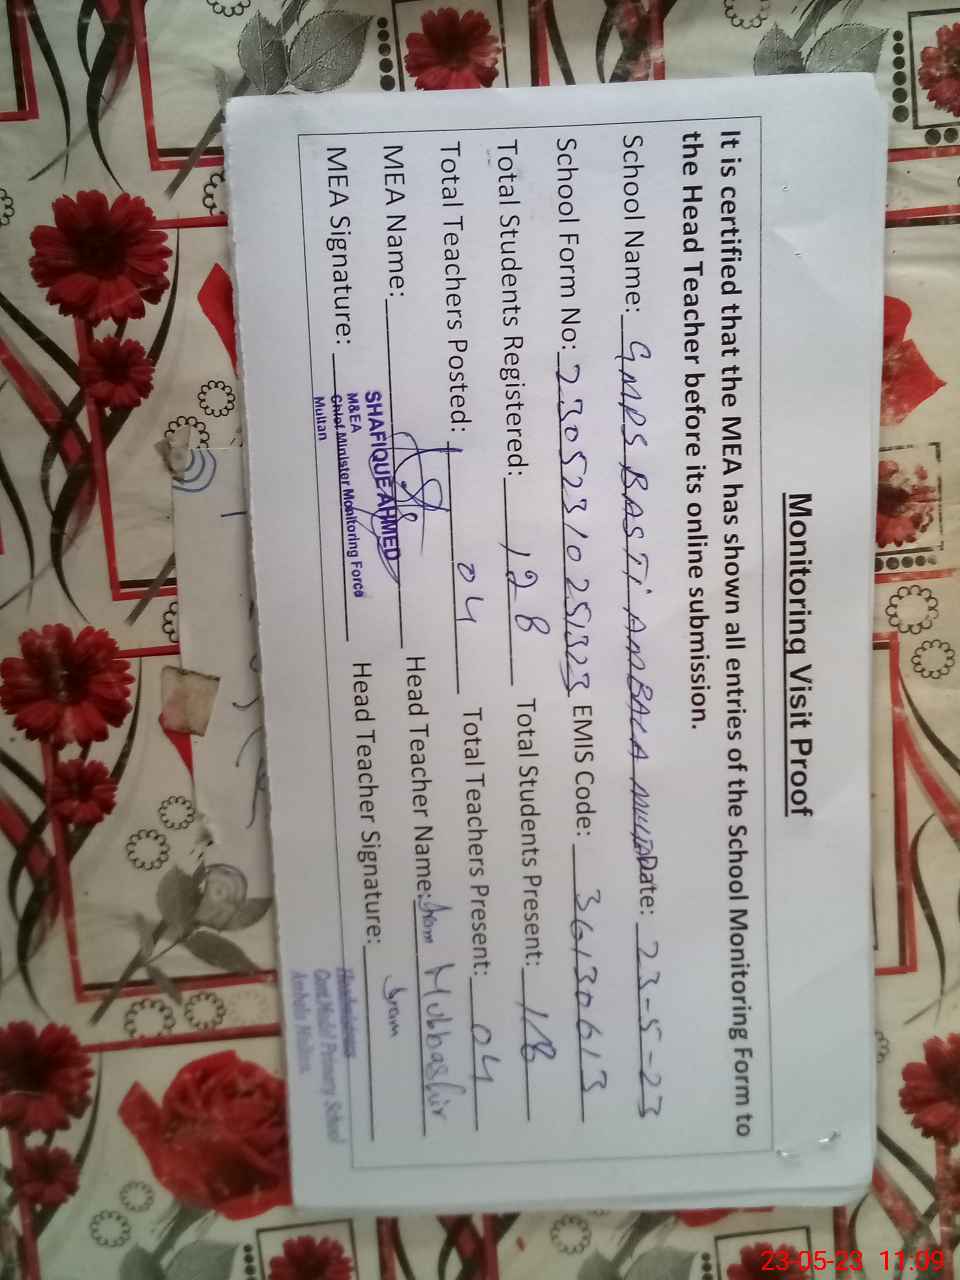 Monitoring Visit Proof
It is certified that the MEA has shown all entries of the School Monitoring Form to
the Head Teacher before its online submission.
School Name: GMPS BASTI AMBALA Date: 23-5-23
School Form No: 23052310251323 EMIS Code: 36130613
Total Students Registered: 128 Total Students Present: 118
Total Teachers Posted: 04 Total Teachers Present: 04
MEA Name: Head Teacher Name: Iram Mubbashir
SHAFIQUE AHMED
MEA Signature: Head Teacher Signature: Iram
M&EA
Chief Minister Monitoring Force
Multan
Govt Model Primary School
Ambala
23-05-23 11:09